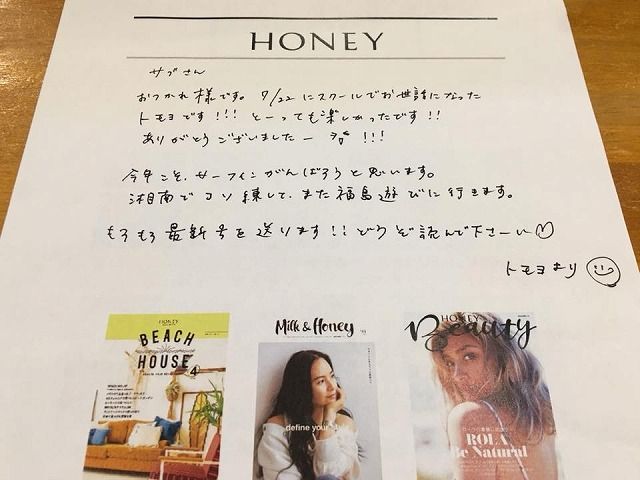 HONEY
サブさん
おつかれ様です。7/22にスクールでお世話になった
トモヨです!!! とーっても楽しかったです!!
ありがとうございましたー !!!
今年こそ、サーフィンがんばろうと思います。
湘南でコソ練して、また福島遊びに行きます。
もろもろ最新号を送ります!! どうぞ読んで下さーい♡
トモヨより
HONEY
BEACH
HOUSE
4
Milk & Honey
define your style
HONEY
Beauty
ROLA
Be Natural